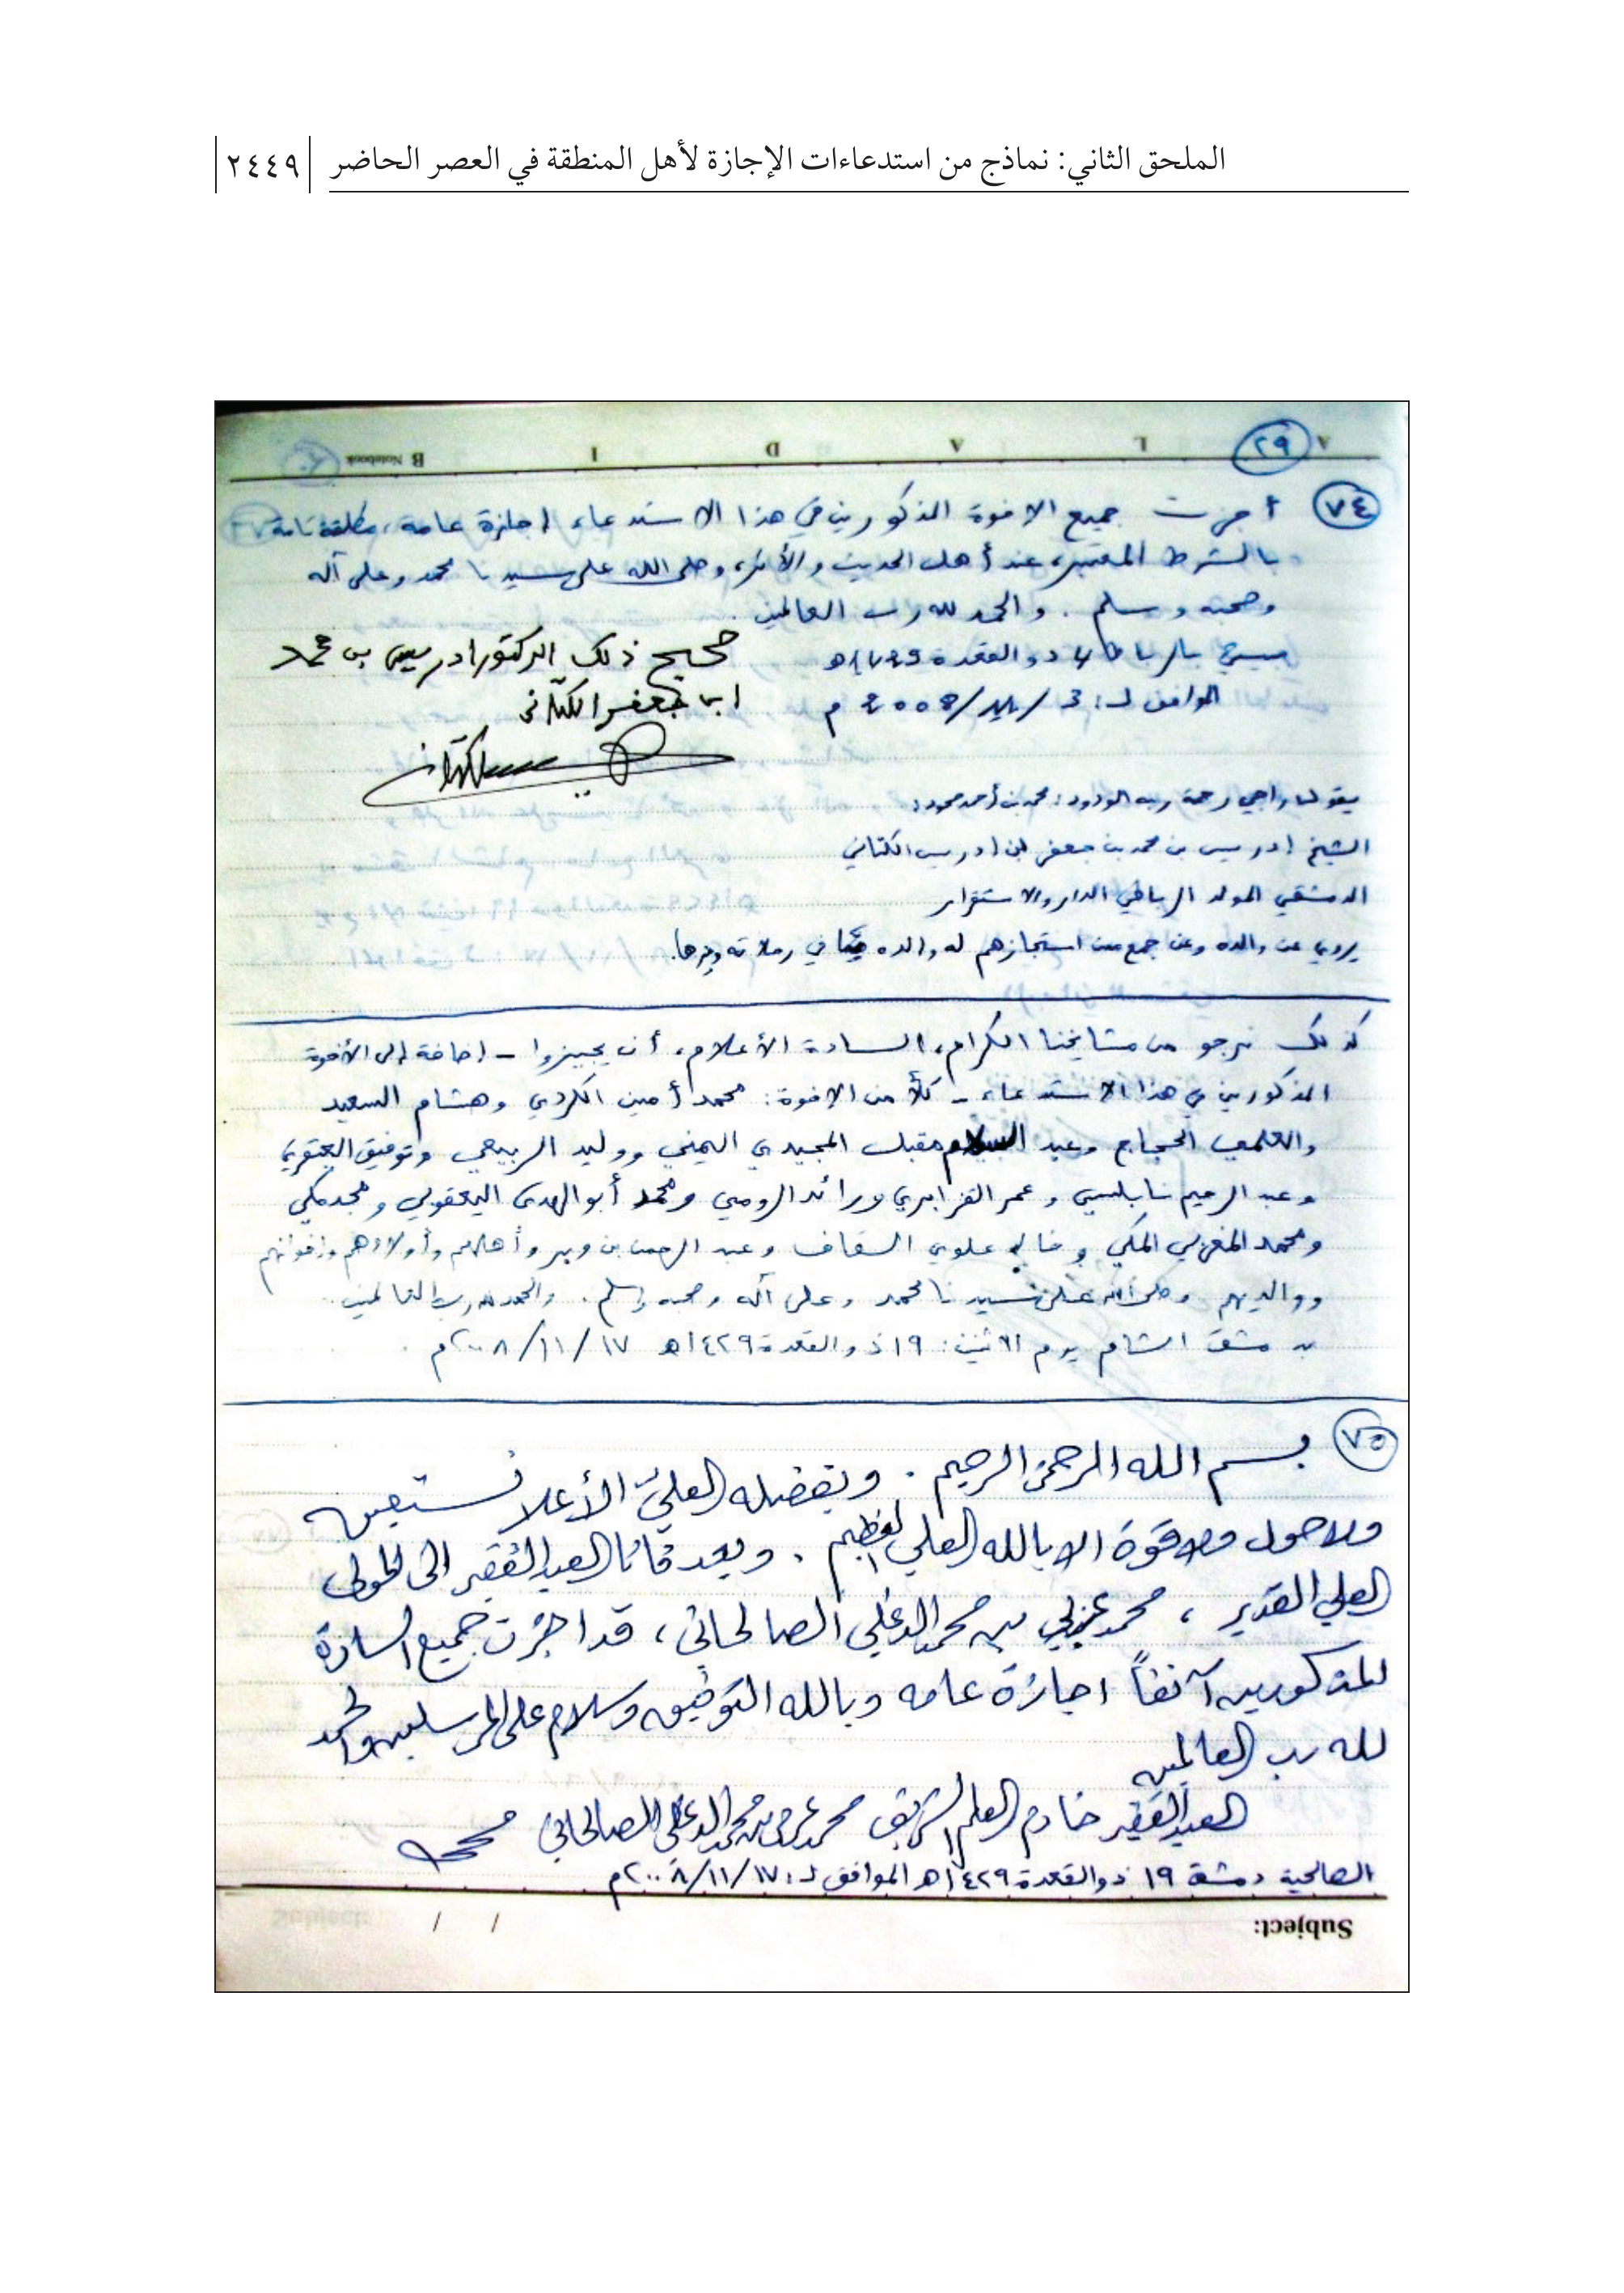 الملحق الثاني: نماذج من استدعاءات الإجازة لأهل المنطقة في العصر الحاضر ٢٤٤٩
A L A D I B Notebook
٢٩
٧٤ أجزت جميع الإخوة المذكورين في هذا الاستدعاء إجازة عامة، مطلقة تامة
بالشرط المعتبر، عند أهل الحديث والأثر، وصلى الله على سيدنا محمد وعلى آله
وصحبه وسلم. والحمد لله رب العالمين.
بالرباط ذو القعدة
صحيح ذلك الدكتور ادريس بن محمد
الموافق لـ:
ابن جعفر الكتاني
يقول راجي رحمة ربه الودود: محمد بن أحمد محمود:
الشيخ إدريس بن محمد بن جعفر ابن إدريس الكتاني
الدمشقي المولد الرباطي الدار والاستقرار
يروي عن والده وعن جمع ممن استجازهم له والده في رحلاته وغيرها.
كذلك نرجو من مشايخنا الكرام، السادة الأعلام، أن يجيزوا - إضافة إلى الأخوة
المذكورين في هذا الاستدعاء - كلاً من الإخوة: محمد أمين الكردي وهشام السعيد
والحجاج وعبد السلام مقبل المجيدي اليمني ووليد الربيعي وتوفيق
وعبد الرحيم نابلسي وعمر القزابري ورائد الرومي ومحمد أبو الهدى اليعقوبي ومجد مكي
ومحمد المغربي المكي و علوي السقاف وعبد الرحمن بن وبير وأهاليهم وأولادهم وإخوانهم
ووالديهم وصلى الله على سيدنا محمد وعلى آله وصحبه وسلم. والحمد لله رب العالمين.
بدمشق الشام يوم الاثنين: ١٩ ذو القعدة ١٤٢٩هـ ١٧/١١/٢٠٠٨م.
٧٥ بسم الله الرحمن الرحيم. وبفضله العليّ الأعلا نستعين
ولا حول ولا قوة الا بالله العلي العظيم. وبعد فأنا العبد الفقير الى المولى
العلي القدير، محمد عربي بن محمد الدغلي الصالحاني، قد اجزت جميع السادة
المذكورين آنفاً اجازة عامه وبالله التوفيق وسلام على المرسلين والحمد
لله رب العالمين
العبد الفقير خادم العلم الشريف محمد عربي بن محمد الدغلي الصالحاني
الصالحية دمشق ١٩ ذو القعدة ١٤٢٩هـ الموافق لـ: ١٧/١١/٢٠٠٨م
Subject: / /